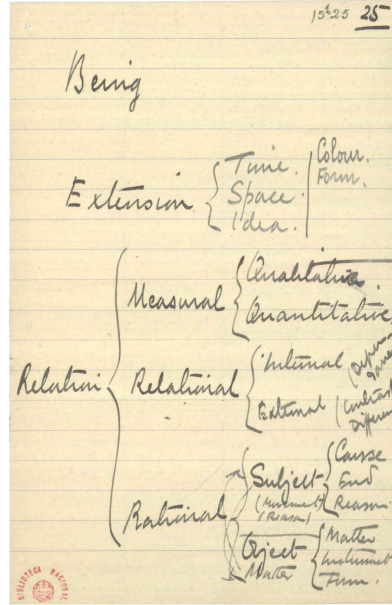 15A-25 25
Being
Extension { Time.
Space.
Idea.
Colour.
Form.
Relation
Measural { Qualitative
Quantitative
Relational { Internal
External
Contrast
Rational
Subject
(Movement)
(Reason)
Cause
End
Reason
Oject
Matter
Matter
Instrument
Form.
BIBLIOTECA NACIONAL